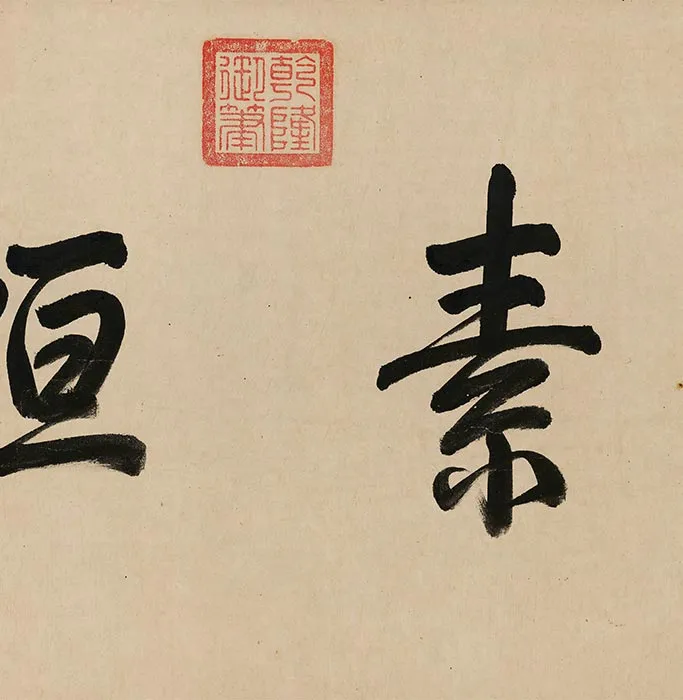 素
乾隆
御筆